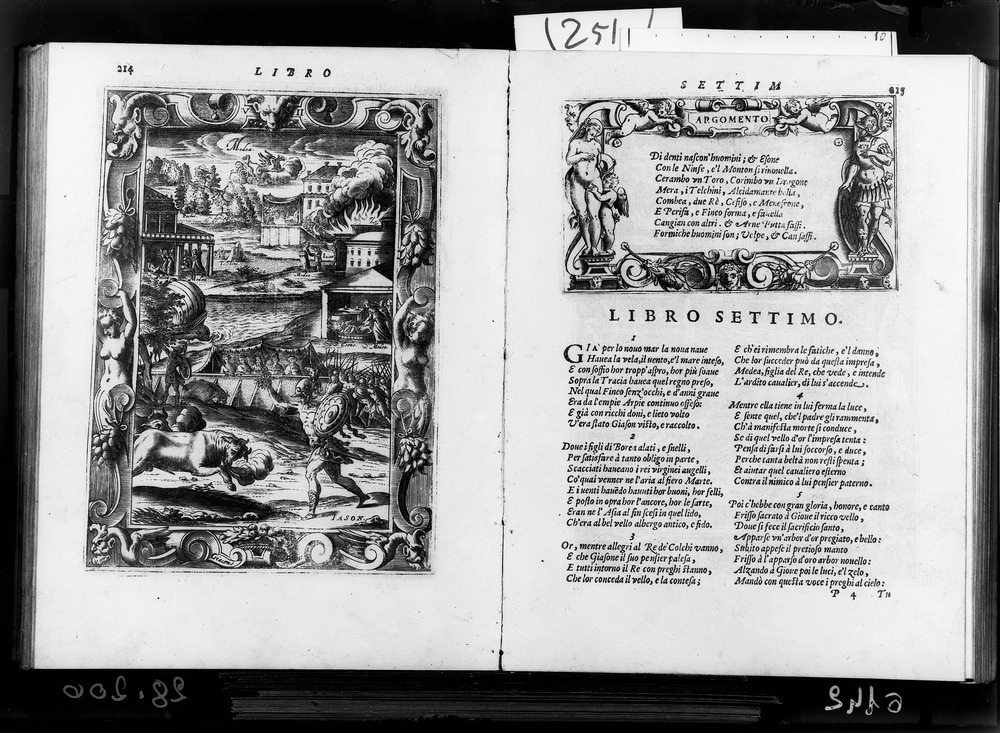 1251
10
214
LIBRO
Medea
IASON.
SETTIM
215
ARGOMENTO
Di denti nascon'huomini; & Esone
Con le Ninfe, e'l Monton si rinouella.
Cerambo vn Toro, Corinibo vn Dragone
Mera, i Telchini, Alcidamante bella,
Combea, due Rè, Cefiso, e Menefrone,
E Perifa, e Fineo forma, e fauella
Cangian con altri. & Arne Putta fassi.
Formiche huomini son; Volpe, & Can sassi.
LIBRO SETTIMO.
1
GIA' per lo nouo mar la noua naue
Hauea la vela, il uento, e'l mare inteso,
E con soffio hor tropp'aspro, hor più soaue
Sopra la Tracia hauea quel regno preso,
Nel qual Fineo senz'occhi, e d'anni graue
Era da l'empie Arpie continuo offeso:
E già con ricchi doni, e lieto volto
V'era stato Giason visto, e raccolto.
2
Doue i figli di Borea alati, e snelli,
Per satisfare à tanto obligo in parte,
Scacciati haueano i rei virginei augelli,
Co'quai venner ne l'aria al fiero Marte.
E i uenti hauēdo hauuti hor buoni, hor felli,
E posto in opra hor l'ancore, hor le sarte,
Eran ne l'Asia al fin scesi in quel lido,
Ch'era al bel vello albergo antico, e fido.
3
Or, mentre allegri al Re de' Colchi vanno,
E che Giasone il suo pensier palesa,
E tutti intorno il Re con preghi stanno,
Che lor conceda il vello, e la contesa;
E ch'ei rimembra le fatiche, e'l danno,
Che lor succeder può da questa impresa,
Medea, figlia del Re, che vede, e intende
L'ardito caualier, di lui s'accende.
4
Mentre ella tiene in lui ferma la luce,
E sente quel, che'l padre gli rammenta,
Ch'à manifesta morte si conduce,
Se di quel vello d'or l'impresa tenta:
Pensa di farsi à lui soccorso, e duce,
Perche tanta beltà non resti spenta;
Et aiutar quel caualiero esterno
Contra il nimico à lui pensier paterno.
5
Poi c'hebbe con gran gloria, honore, e canto
Frisso sacrato à Gioue il ricco vello,
Doue si fece il sacrificio santo,
Apparse vn'arbor d'or pregiato, e bello:
Subito appese il pretioso manto
Frisso à l'apparso d'oro arbor nouello:
Alzando à Gioue poi le luci, e'l zelo,
Mandò con questa voce i preghi al cielo:
P 4 Tu
28.200
6142